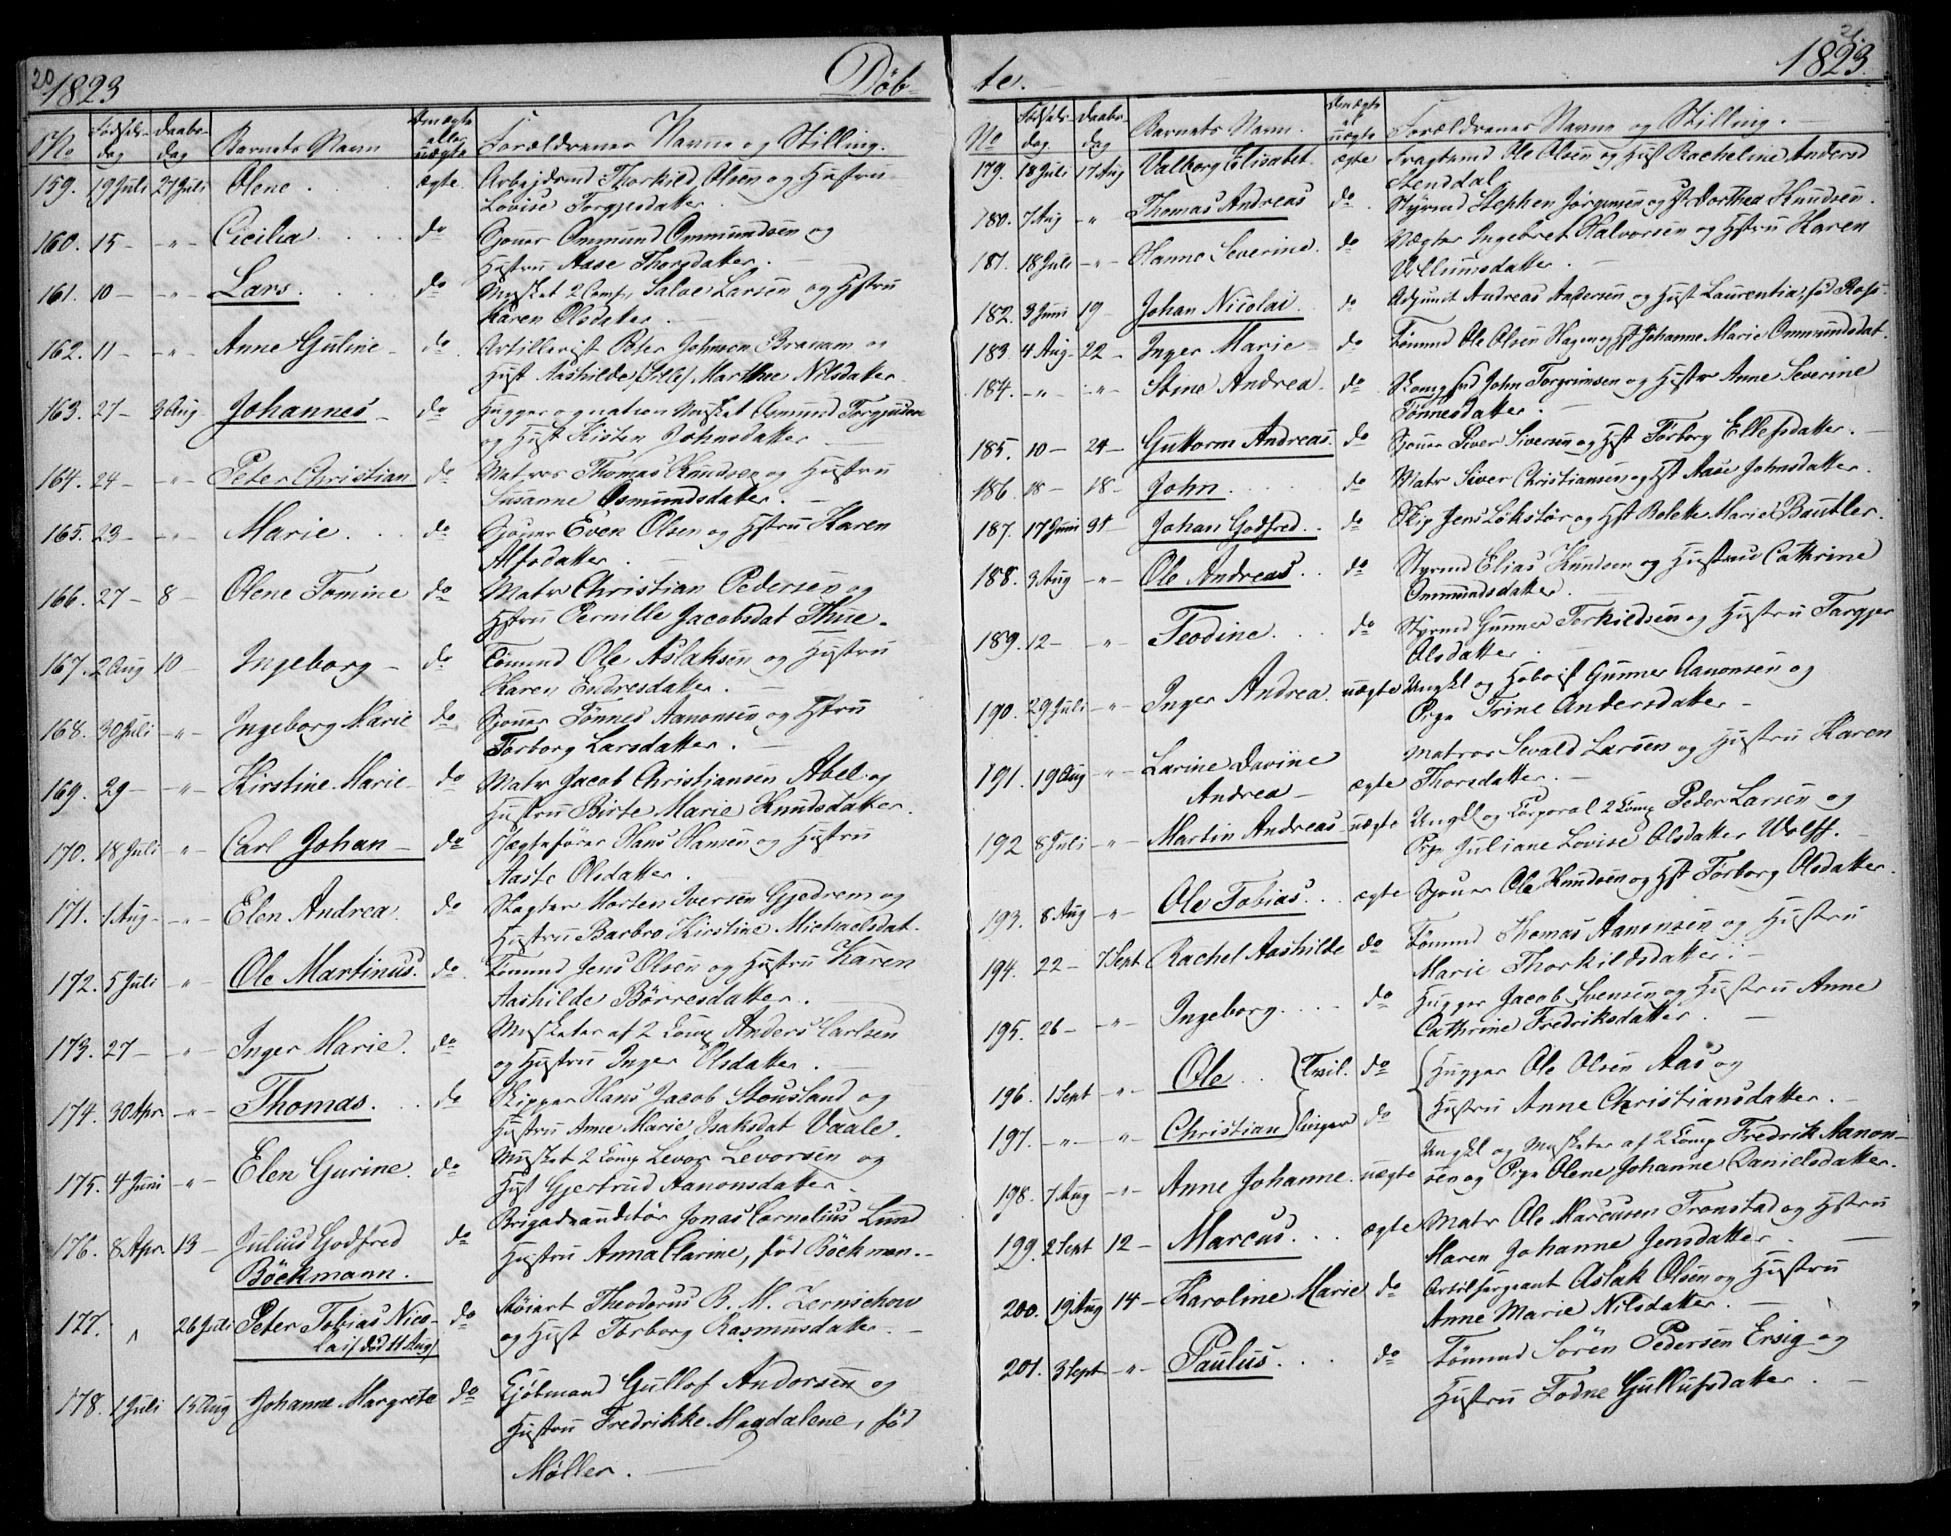 20
1823
Döb-
No
Födsels-
dag
Daabs-
dag
Barnets Navn
Om ægte
eller
uægte
Forældrenes Navne og Stilling.
159. 19 Juli 27 Juli Olene . ægte. Arbejdsmd Thorkild Olsen og Hustru
Lovise Torgjesdatter .
160. 15 - -"- Cicilia . . . . do Sjouer Ommund Ommundsen og
Hustru Aase Thorsdatter. -
161. 10 - -"- Lars . . . . do Musket 2 Comp, Salve Larsen og Hstru
Karen Olsdatter. -
162. 11 - -"- Anne Guline - do Artillerist Peter Johnsen Bravam og
Hust Aashilde (Sille) Marthe Nilsdatter
163. 27 - 3 Aug Johannes - do Hugger og nation Musket Osmund Torgjusen
og Hust Kisten Johnsdatter -
164. 24 - -"- Peter Christian do Matros Thomas Knudsen og Hustru
Susanne Osmundsdatter. -
165. 23 - -"- Marie . . . do Sjouer Even Olsen og Hstru Karen
Alfsdatter . -
166. 27 - 8 - Olene Tomine do Matr Christian Pedersen og
Hstru Pernille Jacobsdat Thue.
167. 2 Aug 10 - Ingeborg - do Tömmd Ole Aslaksen og Hustru
Karen Endresdatter. -
168. 30 Juli -"- Ingeborg Marie do Sjouer Tönnes Aanonsen og Hstru
Torborg Larsdatter. -
169. 29 - -"- Kirstine Marie - do Matr Jacob Christiansen Abel og
Hustru Birte Marie Knudsdatter.
170. 18 Juli -"- Carl Johan - do Jægtefører Hans Hansen og Hustru
Aaste Olsdatter .
171. 1 Aug - -"- Elen Andrea. do Slagter Morten Iversen Gjedrem og
Hustru Barbro Kirstine Michaelsdat.
172. 5 Juli -"- Ole Martinus. do. Tömmd Jens Olsen og Hustru Karen
Aashilde Börresdatter .
173. 27 - -"- Inger Marie. do Musketer af 2 Comp Anders Carlsen
og Hustru Inger Olsdatter . -
174. 30 Apr. -"- Thomas. . . do Skipper Hans Jacob Stousland og
Hustru Anne Marie Isaksdat Vaale.
175. 4 Juni -"- Elen Gurine. do Musket 2 Comp Levor Levorsen og
Hust Gjertrud Aanonsdatter
176. 8 Apr. 13 - Julius Godfred
Böckmann. do Brigadeauditör Jonas Cornelius Lund
Hustru Anna Clarine, fød Böckman.-
177. " 26 Juli Peter Tobias Nico-
lai / död 11 Aug / do Theodorus B. M. Zernichow
og Hust Torborg Rasmusdatter. -
178. 1 Juli 15 Aug Johanne Margrete do Kjöbmand Gullof Andersen og
Hustru Fredrikke Magdalene, född
Møller . -
te.
21.
1823.
No
Födsels-
dag
Daabs-
dag
Barnets Navn .
Om ægte
el
uægte
Forældrenes Navne og Stilling .
179. 18 Juli 17 Aug Valborg Elisabet. ægte Fragtemd Ole Olsen og Hust Racheline Andersd
Stenddal
180. 7 Aug -"- Thomas Andreas do Styrmd Stephen Jørgensen og Dorthea Knudsen.
181. 18 Juli -"- Hanne Severine. do Vægter Ingebret Halvorsen og Hstru Karen
Villumsdatter . -
182. 3 Juni 19 - Johan Nicolai do Adjunct Andreas Andersen og Hust Laurentia, fød Ross.
183. 4 Aug - 22 - Inger Marie - do Tömmd Ole Olsen Hagen og Hst Johanne Marie Ommundsdat.
184. -"- -"- Stine Andrea. do John Torgrimsen og Hustr Anne Severine
Tönnesdatter . -
185. 10 - 24 - Guttorm Andreas. do Sjouer Siver Siversen og Hst Törborg Ellefsdatter . -
186. 18 - 18 - John . . . do Matr Siver Christiansen og Hst Aase Johnsdatter .
187. 17 Juni 31 - Johan Godfred. . do Skip Jens Lökstör og Hst Bolette Marie Bautler.
188. 3 Aug -"- Ole Andreas. . do Styrmd Elias Knudsen og Hustru Cathrine
Ommundsdatter .
189. 12 - -"- Teodine. . . do Styrmd Gunner Torkildsen og Hustru Targjer
Olsdatter . -
190. 29 Juli -"- Inger Andrea. uægte Ungkl og Hoboist Gunner Aanonsen og
Pige Trine Andersdatter -
191. 19 Aug -"- Larine Davine
Andrea - ægte Matros Sevald Larsen og Hustru Karen
Thorsdatter. -
192 8 Juli -"- Martin Andreas - uægte Ungkl og Corporal 2 Comp Peder Larsen og
Pige Juliane Lovise Olsdatter Wolff. -
193. 8 Aug -"- Ole Tobias. . . ægte Sjouer Ole Knudsen og Hst Torborg Olsdatter.
194. 22 - 7 Sept Rachel Aashilde do Tömmd Thomas Aanonsen og Hustru
Marie Thorkildsdatter. -
195. 26 - -"- Ingeborg. . . . do Hugger Jacob Svensen og Hustru Anne
Cathrine Fredriksdatter. -
196. 1 Sept -"- Ole . . (Tvil. do Hugger Ole Olsen Aas og
197. -"- -"- Christian linger do Hustru Anne Christiansdatter. -
198. 7 Aug -"- Anne Johanne. uægte Ungkl og Musketer af 2 Comp Fredrik Aanon-
sen og Pige Olene Johanne Danielsdatter.
199. 2 Sept 12 - Marcus. . . ægte Matr Ole Marcusen Tronstad og Hstru
Maren Johanne Jensdatter . -
200. 19 Aug 14 - Karoline Marie do Artil sergeant Aslak Olsen og Hustru
Anne Marie Nilsdatter. -
201. 3 Sept -"- Paulus. . . . do Tömmd Sören Pedersen Ersig og
Hustru Todne Gullufsdatter . -